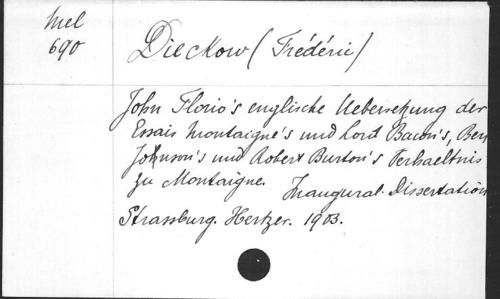 Mel
690
Dieckow (Frédéric)
John Florio's englische Uebersetzung der
Essais Montaigne's und Lord Bacon's, Ben
Johnson's und Robert Burton's Verhaeltnis
zu Montaigne. Inaugural-Dissertation
Strassburg. Hertzer. 1903.